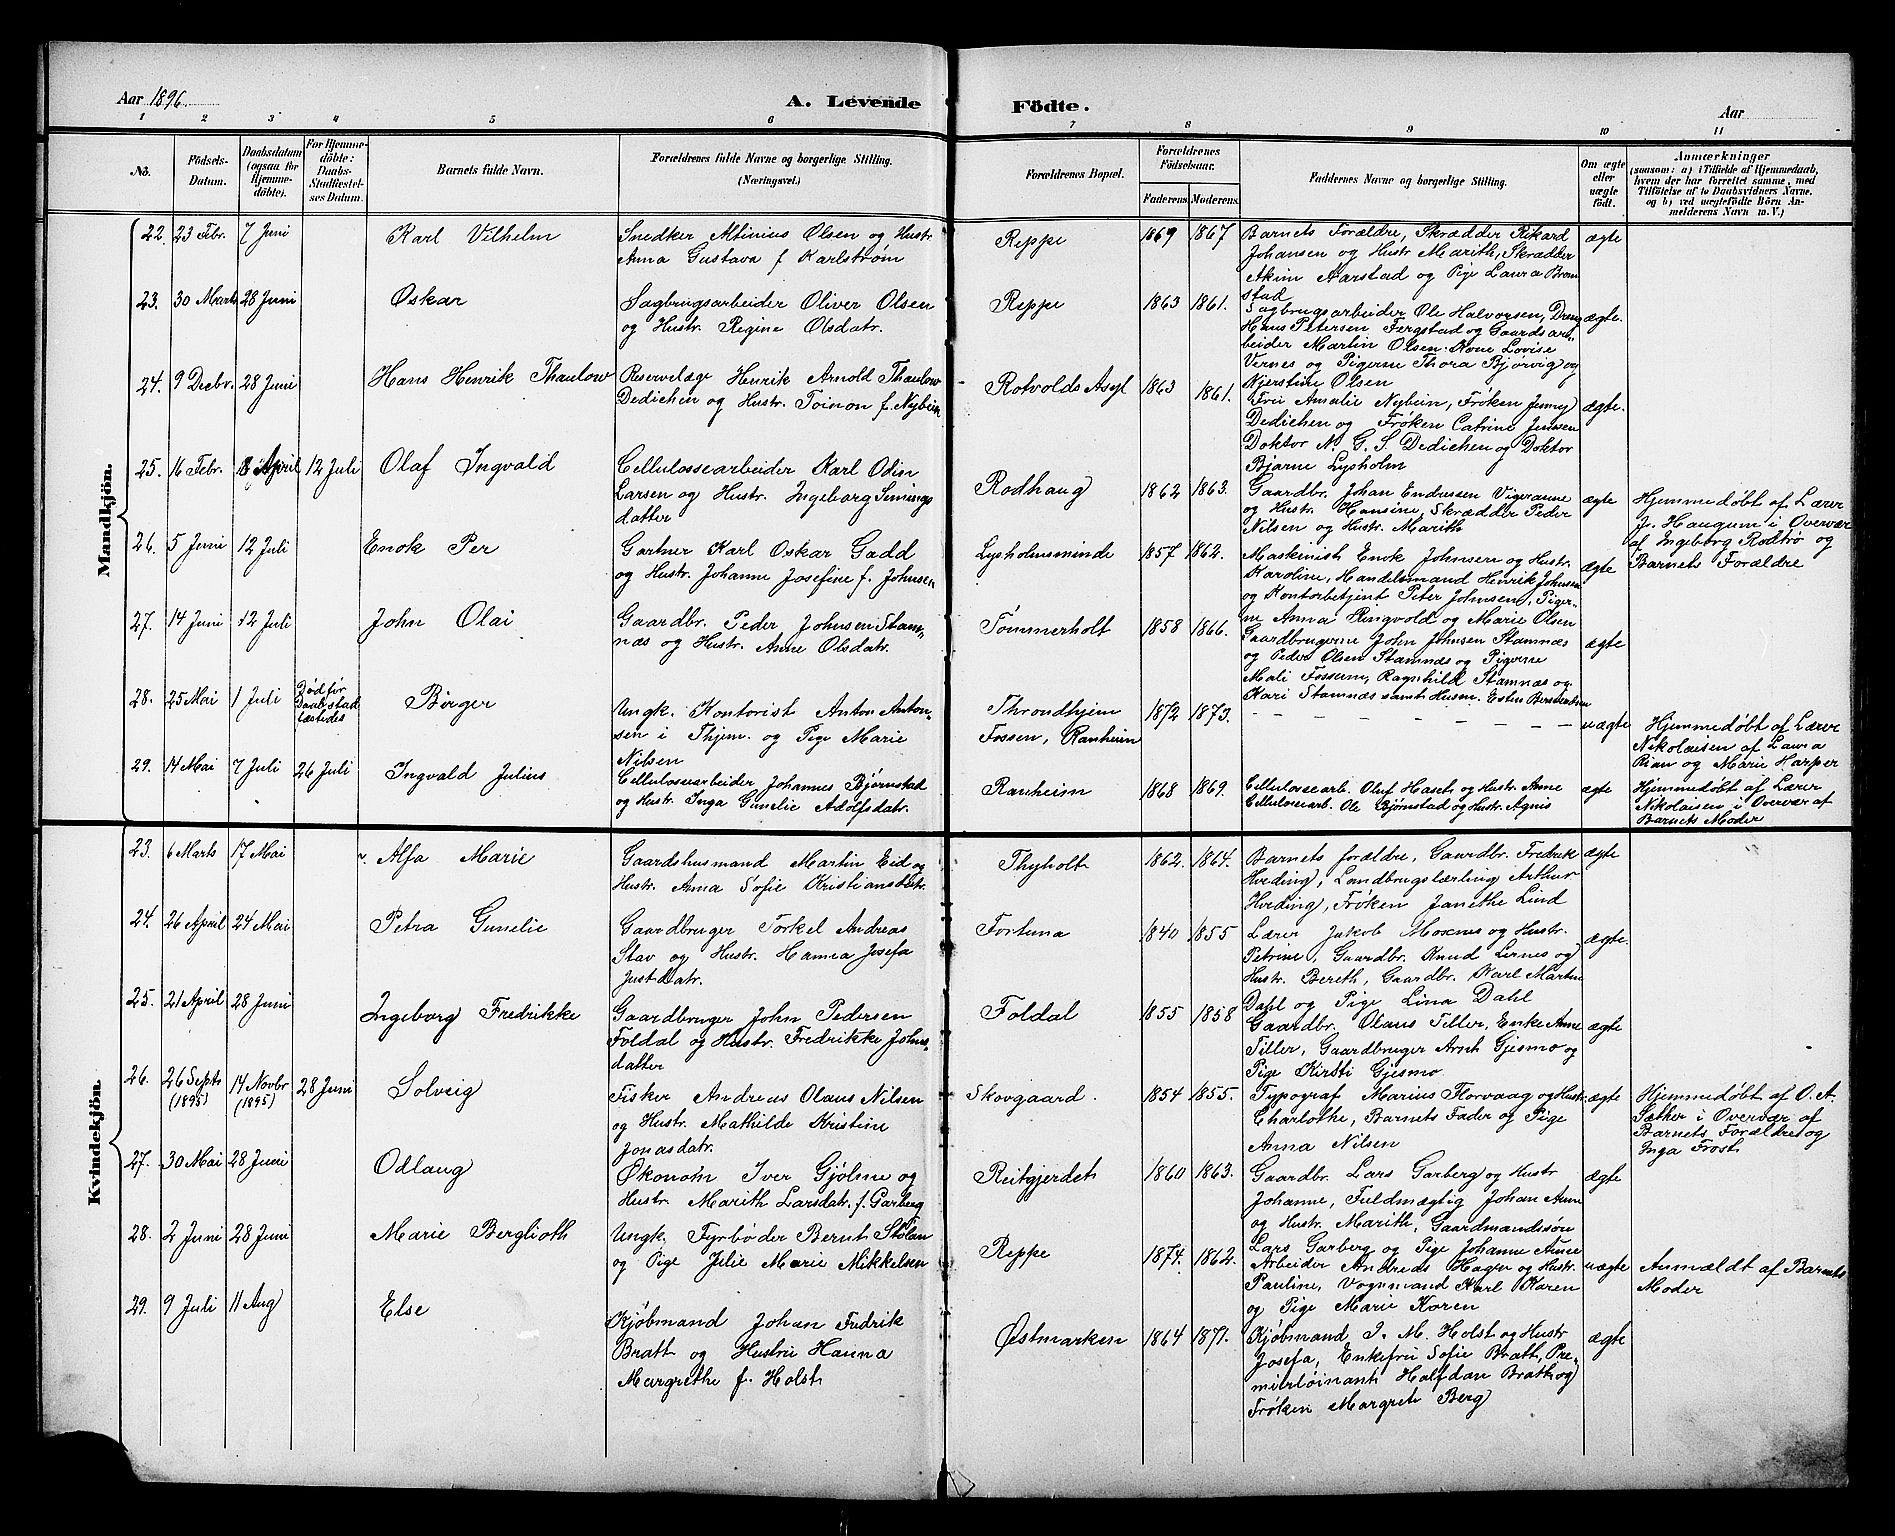 Aar 1896.
A. Levende Födte.
Aar
1 2 3 4 5 6 7 8 9 10 11
No.
Födsels-Datum.
Daabsdatum (ogsaa for Hjemmedöbte).
For Hjemmedöbte: Daabs-Stadfæstelses Datum.
Barnets fulde Navn.
Forældrenes fulde Navne og borgerlige Stilling.
(Næringsvei.)
Forældrenes Bopæl.
Forældrenes Födselsaar.
Faderens. Moderens.
Faddernes Navne og borgerlige Stilling.
Om ægte eller uægte født.
Anmærkninger
(saasom: a) i Tilfælde af Hjemmedaab, hvem der har forrettet samme, med Tilföielse af to Daabsvidners Navne, og b) ved uægtefödte Börn Anmelderens Navn m. V.)
Mandkjön.
22. 23 Febr. 7 Juni
Karl Vilhelm
Snedker Altinius Olsen og Hustr
Anna Gustava f. Karlstrøm
Reppe
1869 1867
Barnets Forældre, Skrædder Rikard
Johansen og Hustr Marith, Skrædder
Akim Aarstad og Pige Laura Brem
stad
ægte
23. 30 Marts 28 Juni
Oskar
Sagbrugsarbeider Oliver Olsen
og Hustr. Regine Olsdatr.
Reppe
1863 1861.
Sagbrugsarbeider Ole Halvorsen, Dreng
Hans Petersen Fergstad og Gaardsar-
beider Martin Olsen. Kone Lovise
Vernes og Pigerne Thora Bjørvig og
Kjerstine Olsen
ægte.
24. 9 Decbr. 28 Juni
Hans Henrik Thaulow
Reservelæge Henrik Arnold Thaulow
Dedichen og Hustr. Toinon f. Nybein
Rotvolds Asyl
1863 1861.
Fru Amalie Nybein, Frøken Jenny
Dedichen og Frøken Catrine Jenssen
Doktor N. G. S. Dedichen og Doktor
Bjarne Lysholm
ægte.
25. 16 Febr. 18 April 12 Juli
Olaf Ingvald
Cellulossearbeider Karl Odin
Larsen og Hustr. Ingeborg Simings
datter
Rodhaug
1862 1863.
Gaardbr. Johan Endresen Vigeraune
og Hustr. Hansine, Skrædder Peder
Nilsen og Hustr. Marith
ægte
Hjemmedøbt af Lærer
J. Haugum i Overvær
af Ingeborg Rodtrø og
Barnets Forældre
26. 5 Juni 12 Juli
Enok Per
Gartner Karl Oskar Gadd
og Hustr. Johanne Josefine f. Johnsen
Lysholmsminde
1857 1862.
Maskinist Enok Johnsen og Hustr.
Karoline, Handelsmand Henrik Johnsen
og Kontorbetjent Peter Johnsen, Piger-
ne Anna Ringvold og Marie Olsen
ægte
27. 14 Juni 12 Juli
John Olai
Gaardbr. Peder Johnsen Stam-
næs og Hustr. Anne Olsdatr.
Tømmerholt
1858 1866.
Gaardbrugerne John Johnsen Stamnæs
og Peder Olsen Stamnæs og Pigerne
Mali Fossem, Ragnhild Stamnæs og
Kari Stamnæs samt Husm. Esten Berntsen
ægte
28. 25 Mai 1 Juli
Død før
Daab stad
fæstedes
Børger
Ungk. Kontorist Anton Anton-
sen i Thjem. og Pige Marie
Nilsen
Throndhjem
Fossen, Ranheim
1872 1873.
– – – – – – – –
uægte
Hjemmedøbt af Lærer
Nikolaisen af Laura
Rian og Marie Harper
29. 14 Mai 7 Juli 26 Juli
Ingvald Julius
Cellulosearbeider Johannes Bjørnstad
og Hustr. Inga Gunelie Adolfsdatr.
Ranheim
1868 1869.
Cellulosearb. Oluf Hasch og Hustr Anne
Cellulosearb. Ole Bjørnstad og Hustr. Agnis
ægte
Hjemmedøbt af Lærer
Nikolaisen i Overvær af
Barnets Moder
Kvindekjön.
23. 6 Marts 17 Mai
Alfa Marie
Gaardshusmand Martin Eid og
Hustr. Anna Sofie Kristiansdatr.
Thyholt
1862. 1864.
Barnets forældre, Gaardbr. Fredrik
Hveding, Landbrugslærling Arthur
Hveding, Frøken Janethe Lind
ægte
24. 26 April 24 Mai
Petra Gunelie
Gaardbruger Torkel Andreas
Stav og Hustr. Hanna Josefa
Justdatr.
Fortuna
1840 1855
Lærer Jakob Moxnes og Hustr.
Petrine, Gaardbr. Knud Lernes og
Hustr. Bereth, Gaardbr. Karl Martin
Dahl og Pige Lina Dahl
ægte.
25. 21 April 28 Juni
Ingeborg Fredrikke
Gaardbruger John Pedersen
Foldal og Hustr. Fredrikke Johns-
datter
Foldal
1855 1858
Gaardbr. Olaus Tiller, Enke Anne
Tiller, Gaardbruger Arnt Gjesmo og
Pige Kirsti Gjesmo
ægte
26. 26 Septb (1895) 14 Novbr (1895) 28 Juni
Solveig
Fisker Andreas Olaus Nilsen
og Hustr. Mathilde Kristine
Jonasdatr.
Skovgaard.
1854 1855.
Typograf Marius Florvaag og Hustr.
Charlothe, Barnets Fader og Pige
Anna Nilsen
ægte
Hjemmedøbt af O. A.
Sæther i Overvær af
Barnets Forældre og
Inga Frost
27. 30 Mai 28 Juni
Odlaug
Økonom Iver Gjølme og
Hustr. Marith Larsdatr. f. Garberg
Reitgjerdet
1860 1863.
Gaardbr. Lars Garberg og Hustr
Johanne, Fuldmægtig Johan Aune
og Hustr. Marith, Gaardmandssøn
Lars Garberg og Pige Johanne Aune
ægte
28. 2 Juni 28 Juni
Marie Berglioth
Ungk. Fyrbøder Bernt Stølan
og Pige Jilie Marie Mikkelsen
Reppe
1874. 1862.
Arbeider Andreas Hagen og Hustr.
Pauline, Vognmand Karl Koren
og Pige Marie Koren
uægte
Anmældt af Barnets
Moder
29. 9 Juli 11 Aug
Else
Kjøbmand Johan Fredrik
Bratt og Hustru Hanna
Margrethe f. Holst
Østmarken
1864 1871.
Kjøbmand I. M. Holst og Hustr
Josefa, Enkefru Sofie Bratt, Pre-
mierløinant Halfdan Bratt og
Frøken Margrete Berg
ægte